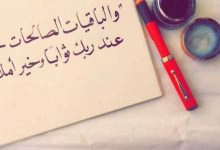 "والباقيات الصالحات خير
عند ربك ثوابا وخير أملا